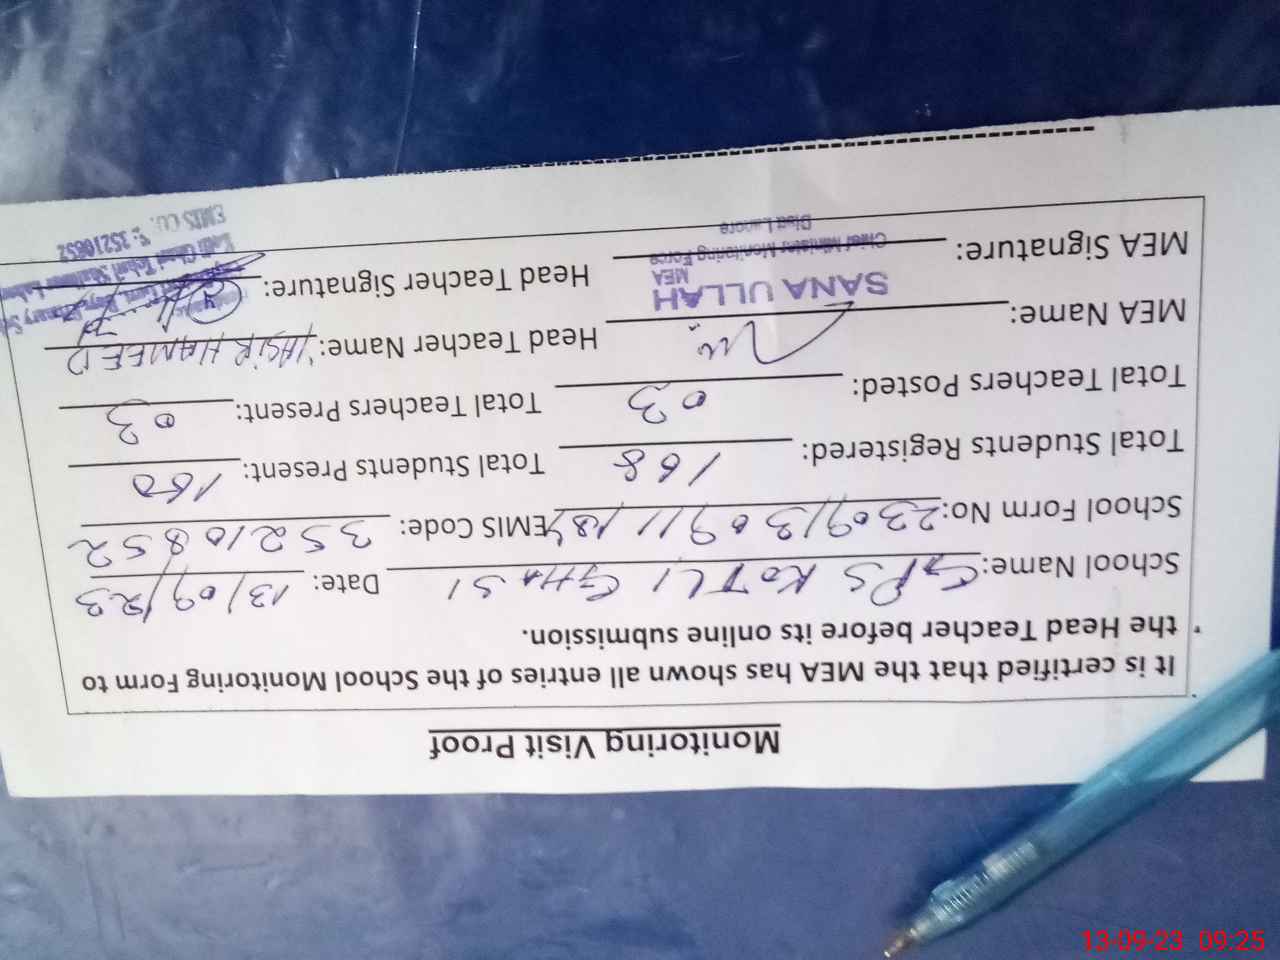 Monitoring Visit Proof
It is certified that the MEA has shown all entries of the School Monitoring Form to
the Head Teacher before its online submission.
School Name: GPS KOTLI GHASI Date: 13/09/23
School Form No: EMIS Code: 35210852
Total Students Registered: 168 Total Students Present:
Total Teachers Posted: 03 Total Teachers Present: 03
MEA Name: Head Teacher Name: YASIR HAMEED
SANA ULLAH
MEA
Chief Minister Monitoring Force
Distt Lahore
MEA Signature: Head Teacher Signature:
EMIS CO. 35210852
13-09-23 09:25